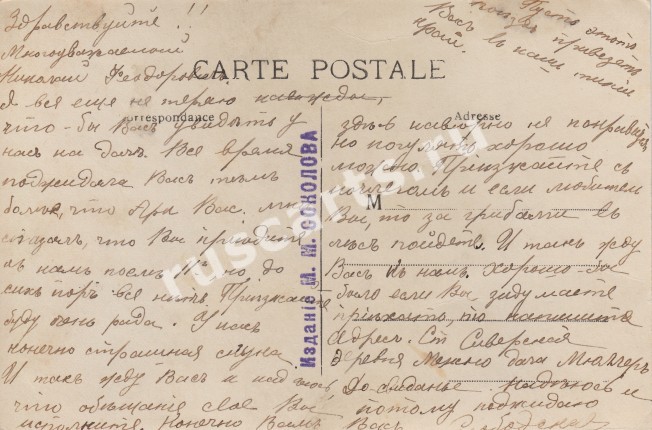 Здравствуйте!!
Многоуважаемый
Николай Феодорович.
Я все еще не теряю надежды,
что-бы Васъ увидѣть у
насъ на дачѣ. Все время
поджидала Васъ тѣмъ
болѣе, что Ара Вас.
сказалъ, что Вы приѣдите
къ намъ послѣ но до
сихъ поръ все нѣтъ. Приѣзжайте
буду очень рада. У насъ
конечно страшная скука.
И такъ жду Васъ и
что обѣщание свое Вы
исполните. Конечно Вамъ
Пусть этотъ
поѣздъ привезетъ
Васъ въ наш тихий
край.
CARTE POSTALE
Correspondance
Adresse
M
Изданіе М. М. СОКОЛОВА
здѣсь навѣрно не понравится
но погулять хорошо
можно. Приѣзжайте съ
ночлегомъ и если любитель
Вы, то за грибами въ
лѣсъ пойдете. И такъ жду
Васъ къ намъ. Хорошо-бы
было если Вы, здумаете
приѣхать, то напишите
Адресъ. Ст Сиверская
деревня Межно дача Мюллеръ
До свиданье. Надѣюсь и
потому поджидаю
Васъ
ruscarts.ru